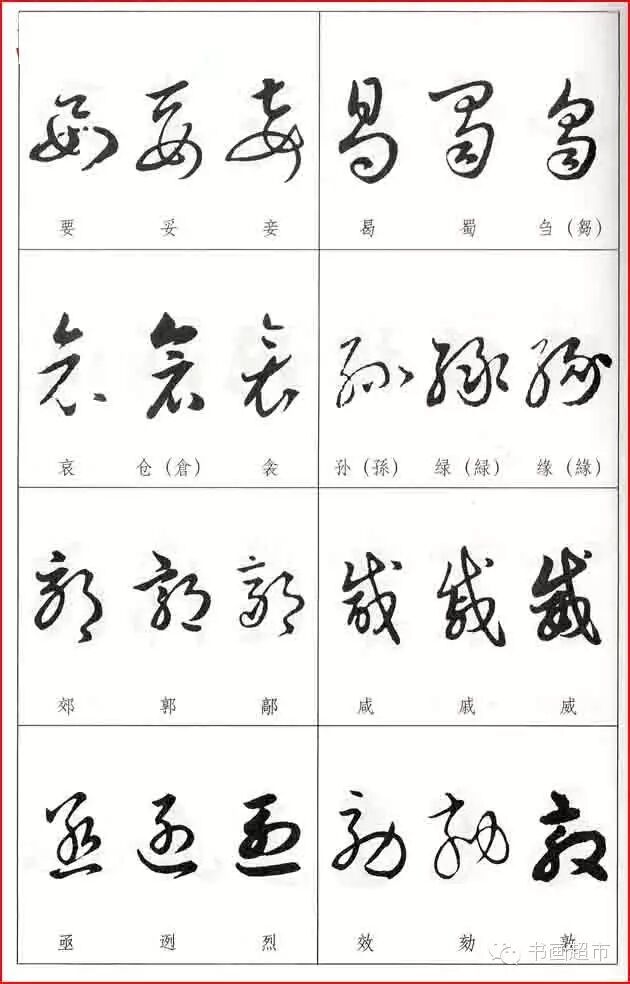 要 妥 妾 曷 蜀 刍（芻）
哀 仓（倉） 衾 孙（孫） 绿（緑） 缘（緣）
郊 郭 鄗 咸 戚 威
亟 迾 烈 效 劾
书画超市